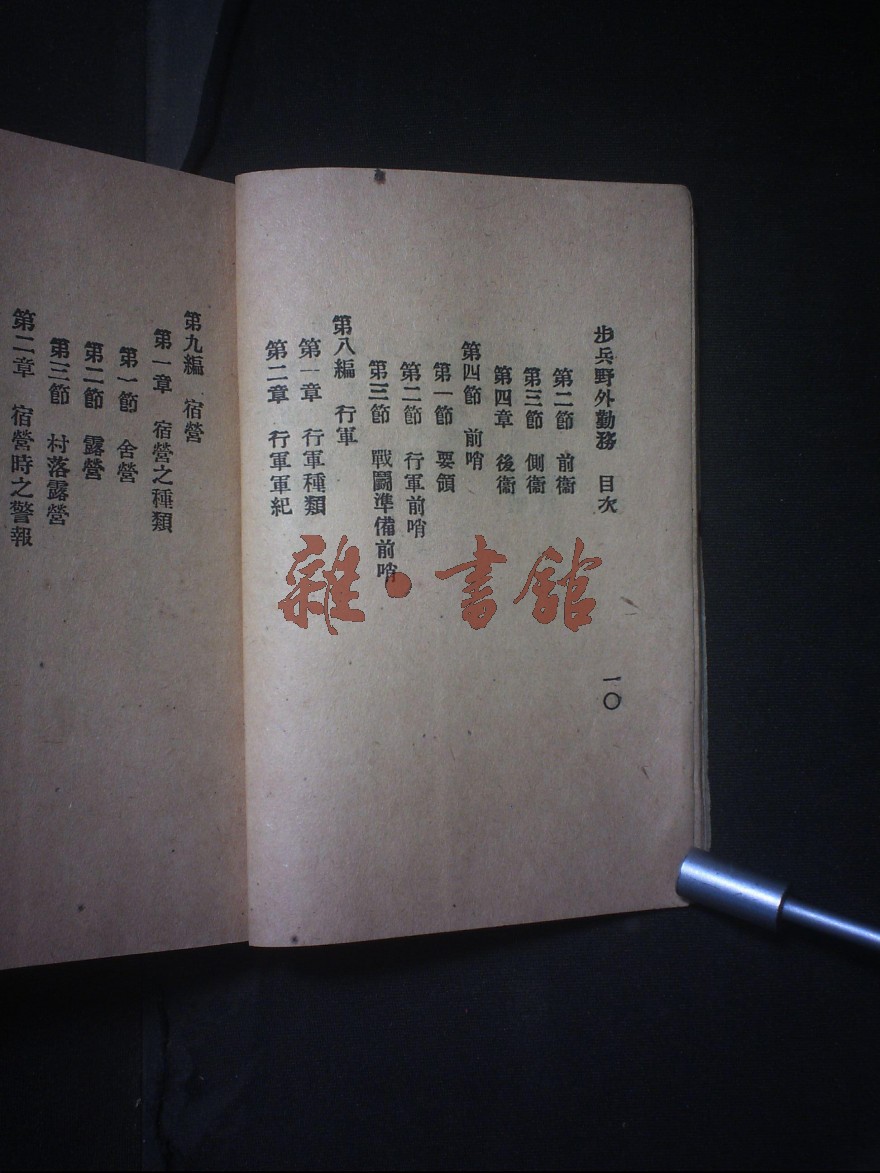 步兵野外勤務　目次
一〇
第二節　前衞
第三節　側衞
第四章　後衞
第四節　前哨
第一節　要領
第二節　行軍前哨
第三節　戰鬭準備前哨
第八編　行軍
第一章　行軍種類
第二章　行軍軍紀
第九編　宿營
第一章　宿營之種類
第一節　舍營
第二節　露營
第三節　村落露營
第二章　宿營時之警報
雜·書館